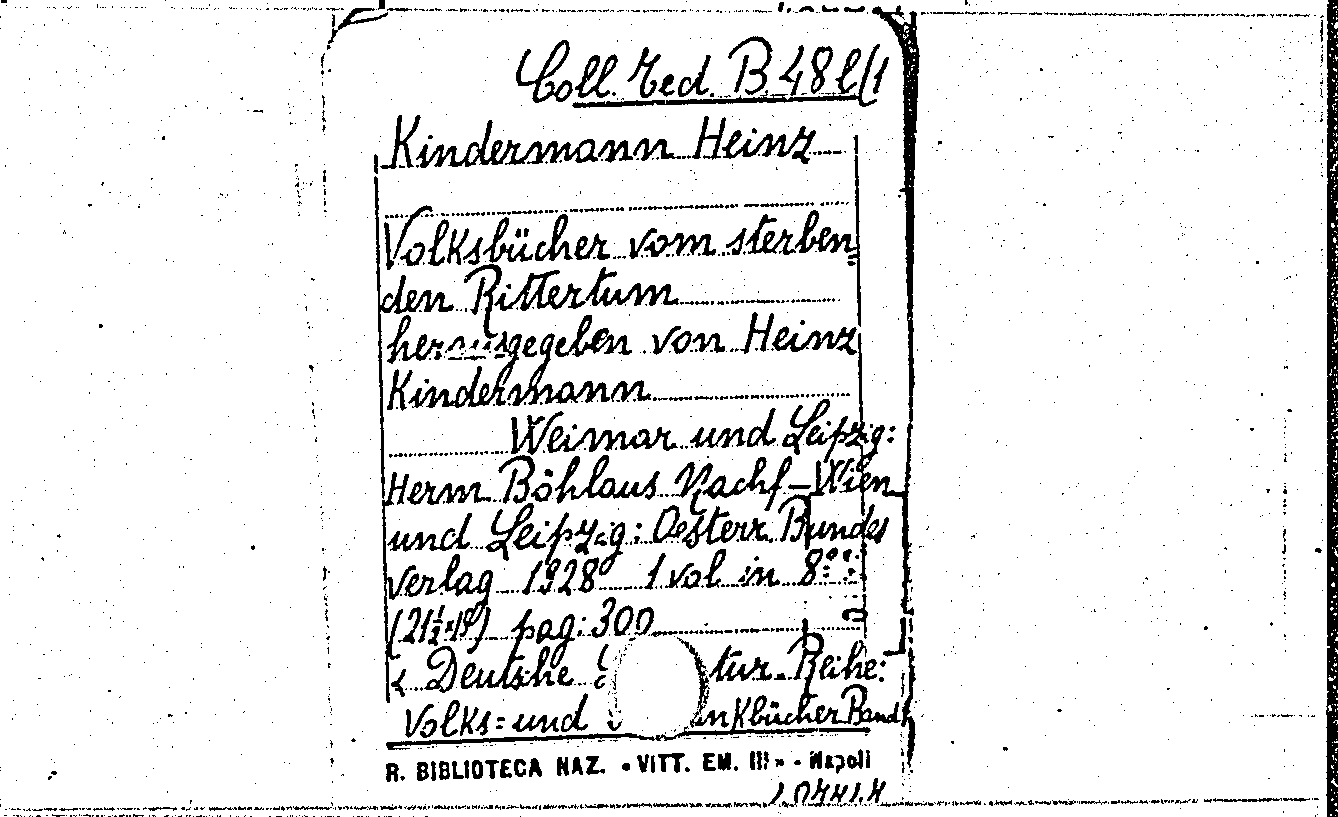 Coll. Ted. B 48 l/1
Kindermann Heinz
Volksbücher vom sterben=
den Rittertum
herausgegeben von Heinz
Kindermann
Weimar und Leipzig:
Herm Böhlaus Nachf - Wien
und Leipzig: Oesterr Bundes
verlag 1928 1 vol in 8º:
pag: 300
« Deutsche tur. Reihe:
Volks= und nkbücher Band 1
R. BIBLIOTECA NAZ. « VITT. EM. III » - Napoli